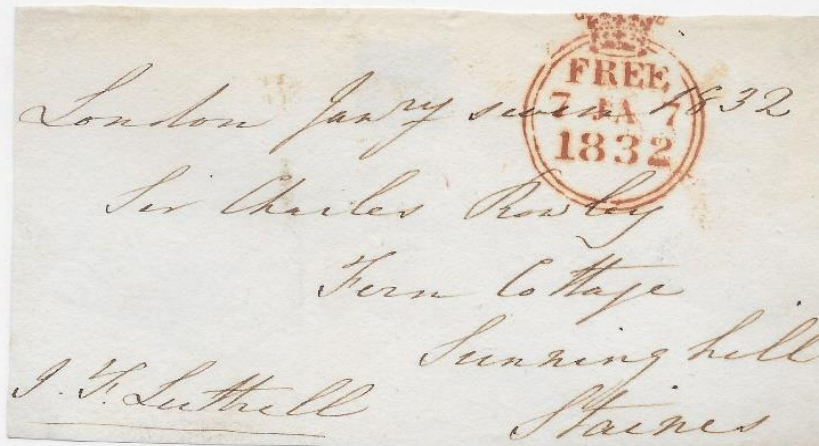 FREE
7 JA 7
1832
London Janry seven 1832
Sir Charles Rowley
Fern Cottage
Sunning hill
Staines
J. F. Luttrell